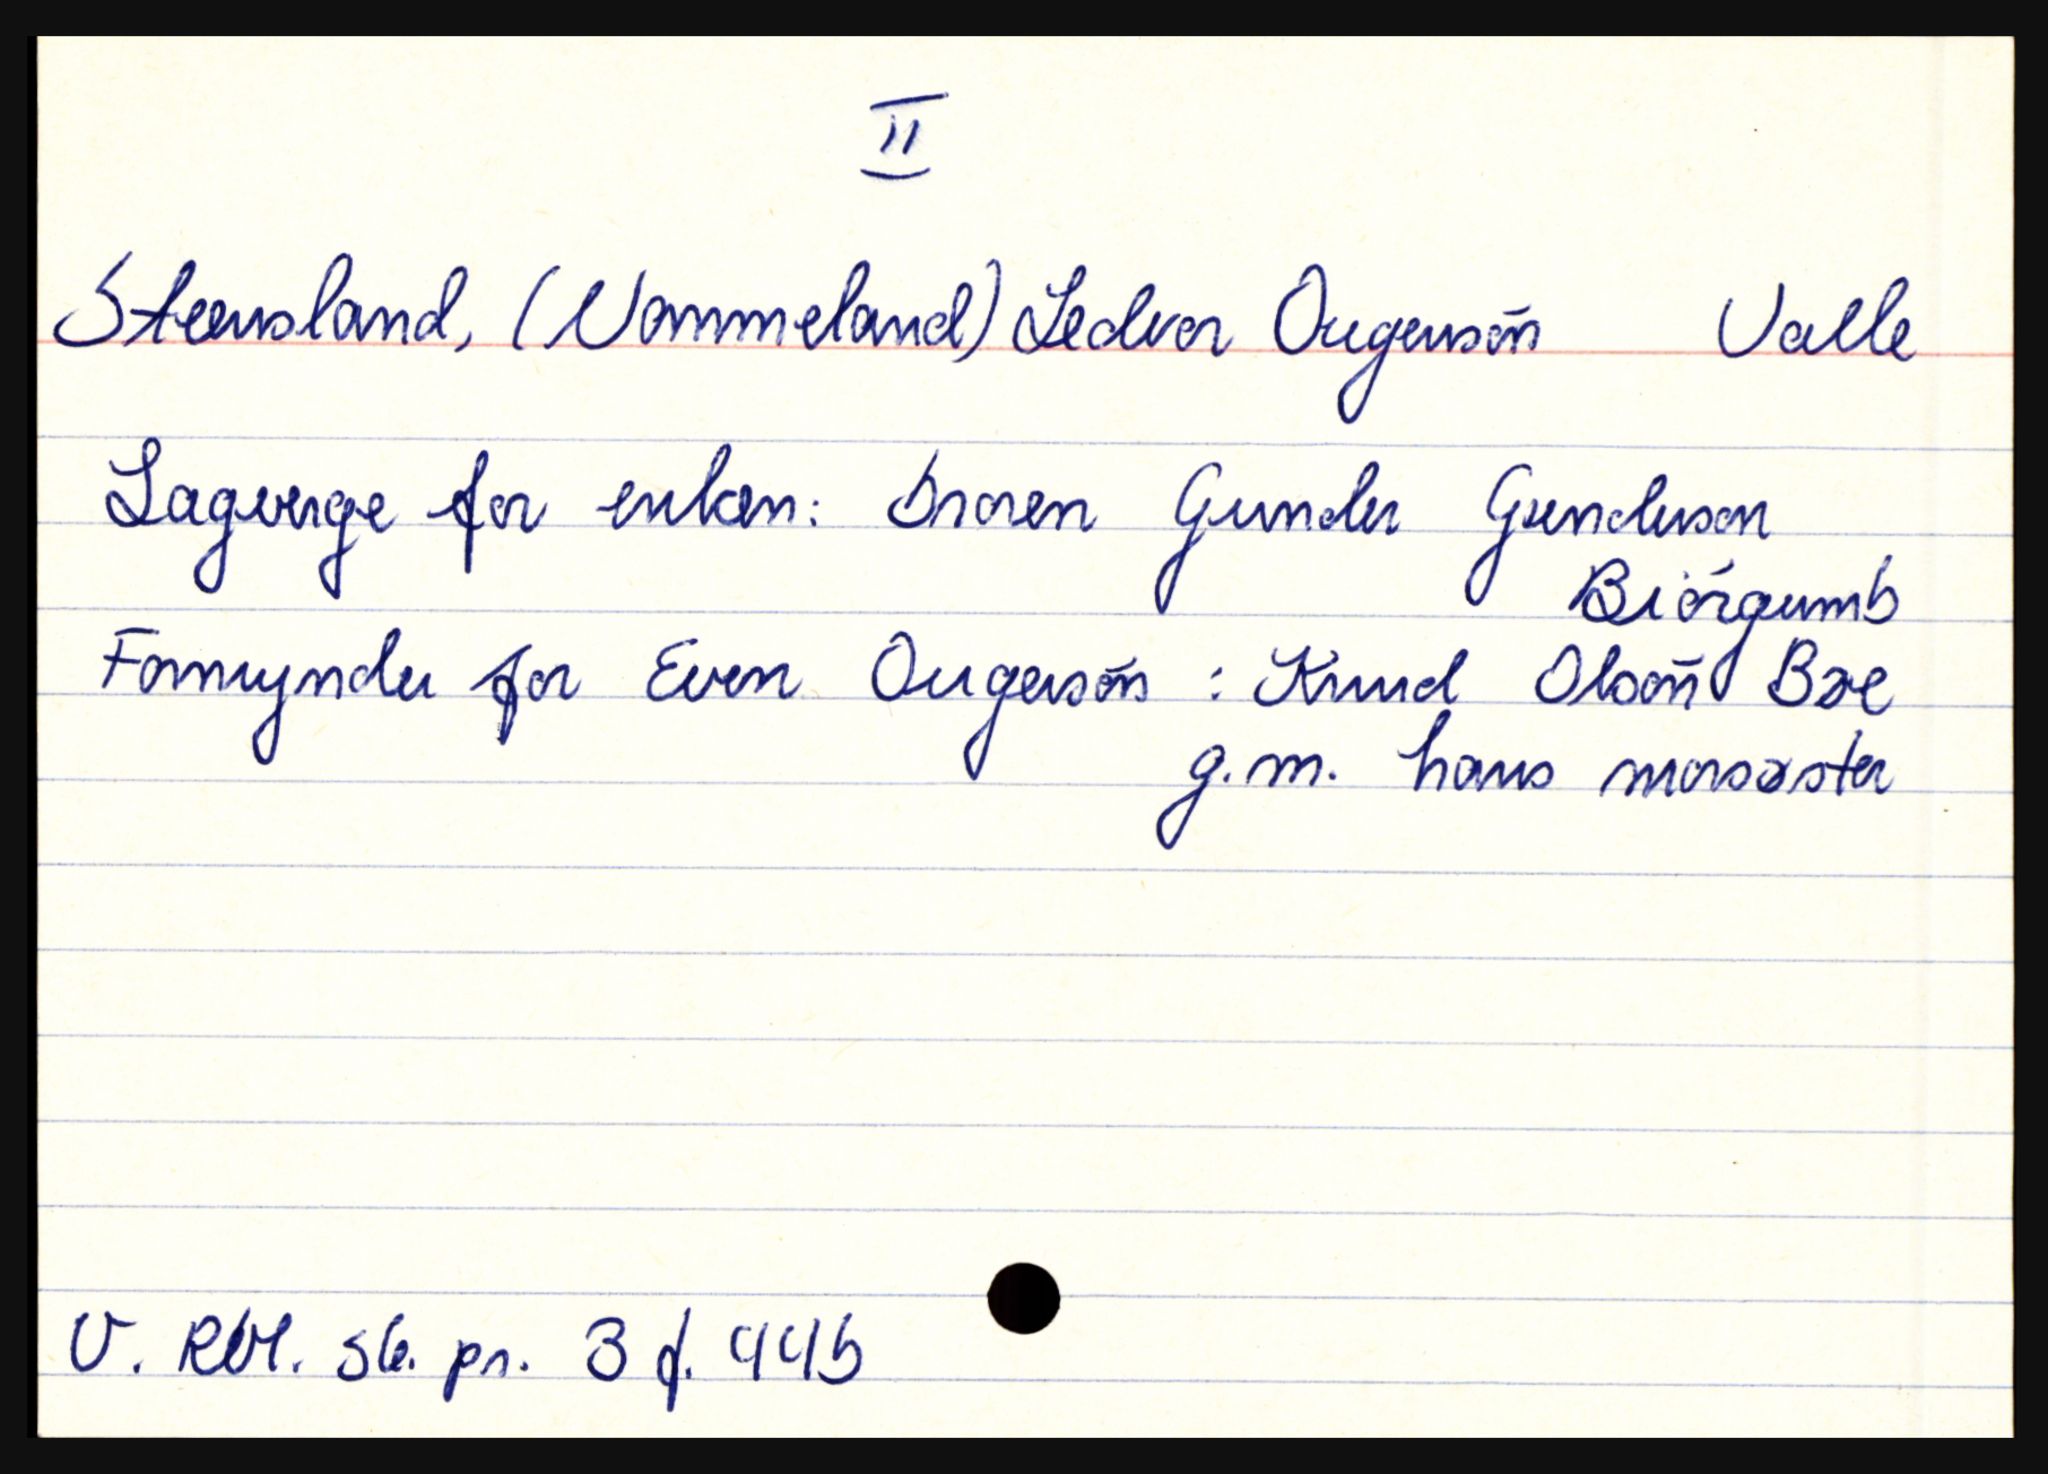 II
Steensland, (Nommeland) Ledvor Ougensøn Valle
Lagverge for enken: broren Gunder Gunderson
Biórgumb
Formynder for Even Ougensøn : Knud Olsøn Bøe
g.m. hans morsøster
V. Rbl. sk. pr. 3 f. 44b